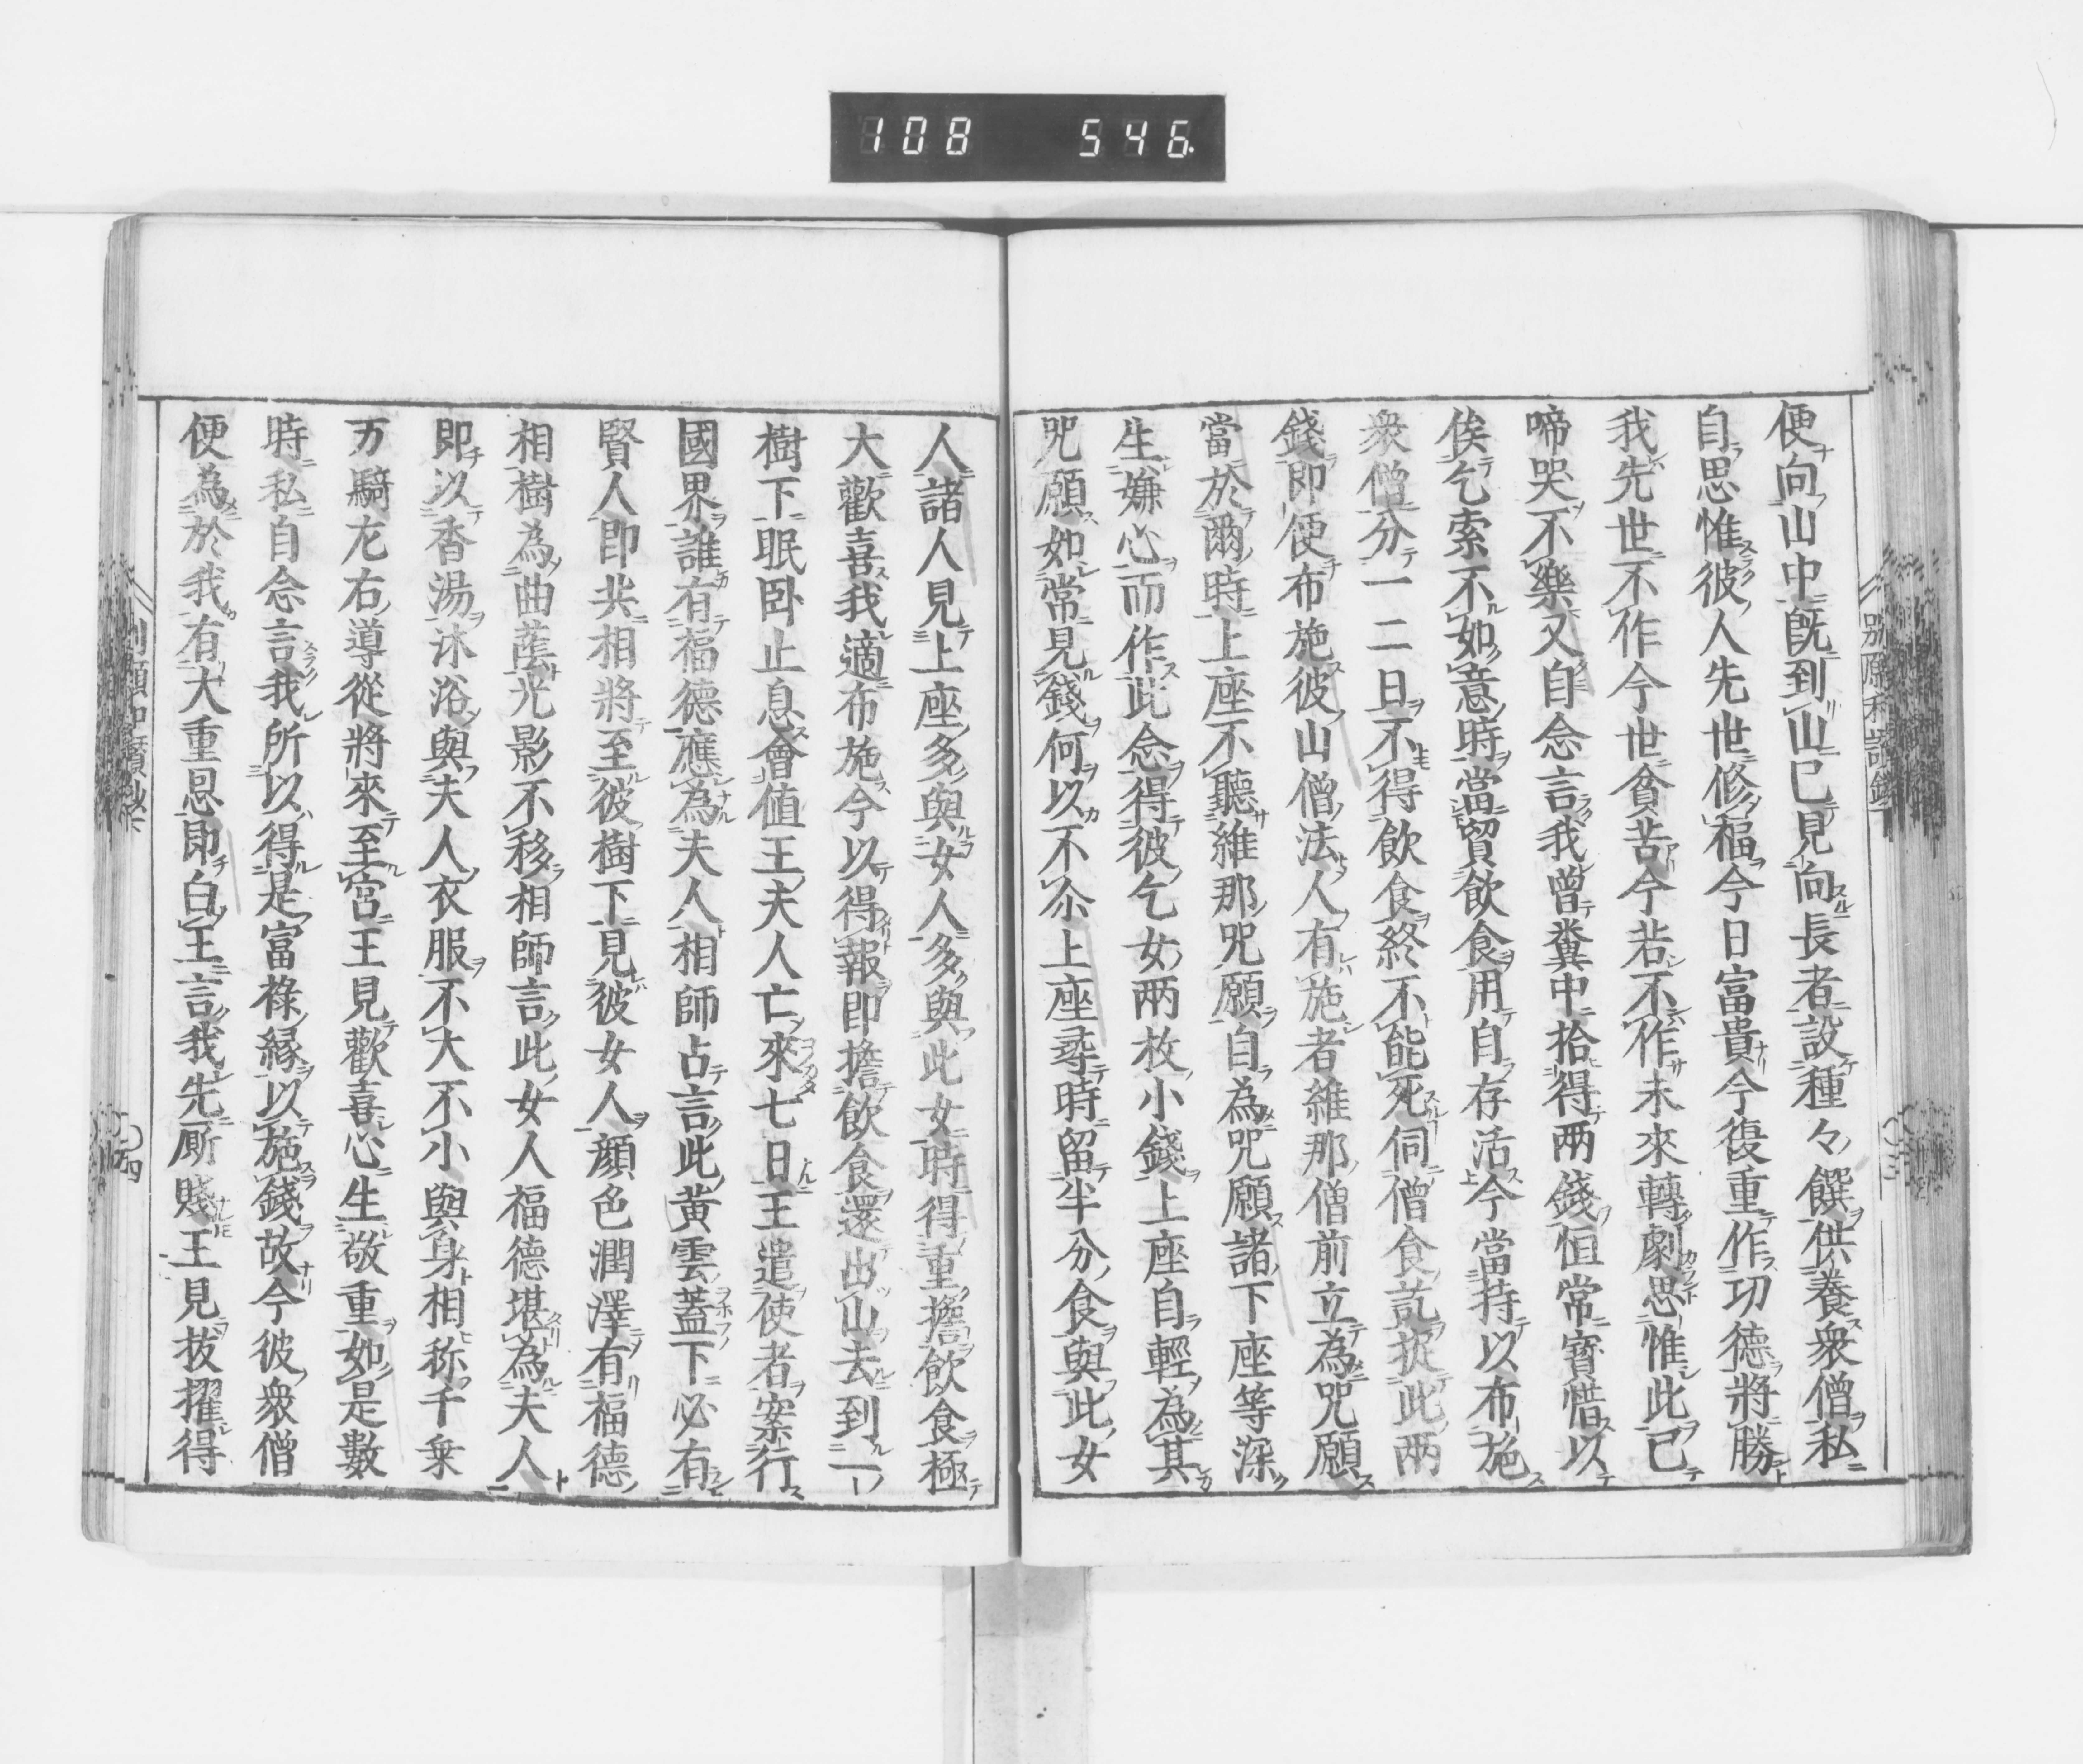 108 546
便向山中既到山已見向長者設種々饌供養衆僧私
自思惟彼人先世修福今日富貴今復重作功德將勝
我先世不作今世貧苦今若不作未來轉劇思惟此已
啼哭不樂又自念言我曾糞中拾得两錢恒常寳惜以
俟乞索不如意時當貿飲食用自存活今當持以布施
衆僧分一二日不得飲食終不能死伺僧食訖捉此两
錢即便布施彼山僧法人有施者維那僧前立為咒願
當於爾時上座不聽維那咒願自為咒願諸下座等深
生嫌心而作此念得彼乞女两枚小錢上座自輕為其
咒願如常見錢何以不尒上座尋時留半分食與此女
人諸人見上座多與女人多與此女時得重擔飲食極
大歡喜我適布施今以得報即擔飲食還出山去到一
樹下眠卧止息會值王夫人亡來七日王遣使者案行
國界誰有福德應為夫人相師占言此黄雲蓋下必有
賢人即共相將至彼樹下見彼女人顔色潤澤有福德
相樹為曲蔭光影不移相師言此女人福德堪為夫人
即以香湯沐浴與夫人衣服不大不小與身相称千乗
万騎左右導從將來至宮王見歡喜心生敬重如是數
時私自念言我所以得是富祿縁以施錢故今彼衆僧
便為於我有大重恩即白王言我先厮賤王見抜擢得